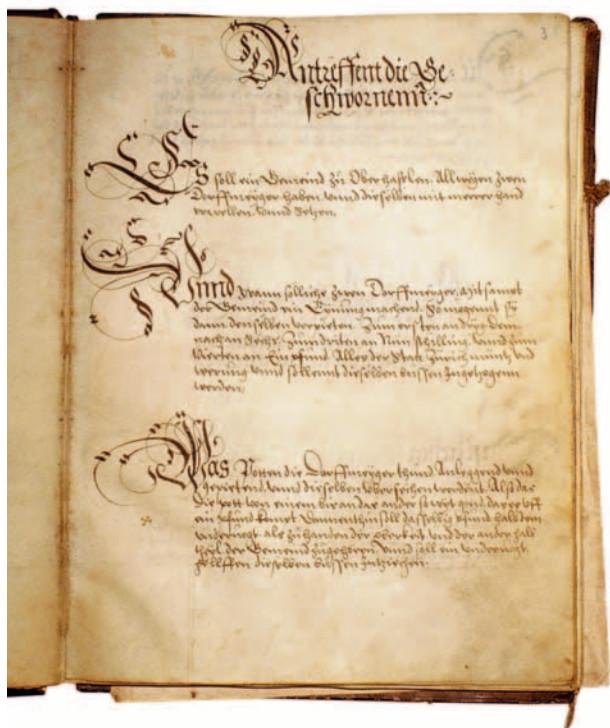 3
Antreffent die Ge-
schwornenn :~
Es soll ein Gemeind zu Oberhaßlen. Allwegen zwen
Dorffmeyger haben, vnnd dieselben mit meerer hand
erwellen, vnnd setzen.
Vnnd wann sölliche zwen Dorffmeyger, mit sampt
der Gemeind ein Eynung machent. So mogent sy
dann denselben verpieten. Zum ersten an drÿg. dem-
nach an Sechs. Zum driten an Nün schilling. vnnd zum
vierten an Ein pfund. Alles der Statt Zürich müntz vnd
werung vnnd sollent dieselben bussen Ingezogenn
werden.
Was Potten die Dorffmeyger thund. Anleggend vnnd
gepietend. vnnd dieselben übersechen werdent. Als das
die pott von einem biß an das ander so wyt gand, das es vff
ein pfund kumpt. Dannenthin soll dasselbig pfund halb dem
vndervogt. als zuhanden der oberkeit. vnd der ander halb
theyl der Gemeind zugehören. vnnd soll ein vndervogt.
helffen dieselben bussen Inziechen.